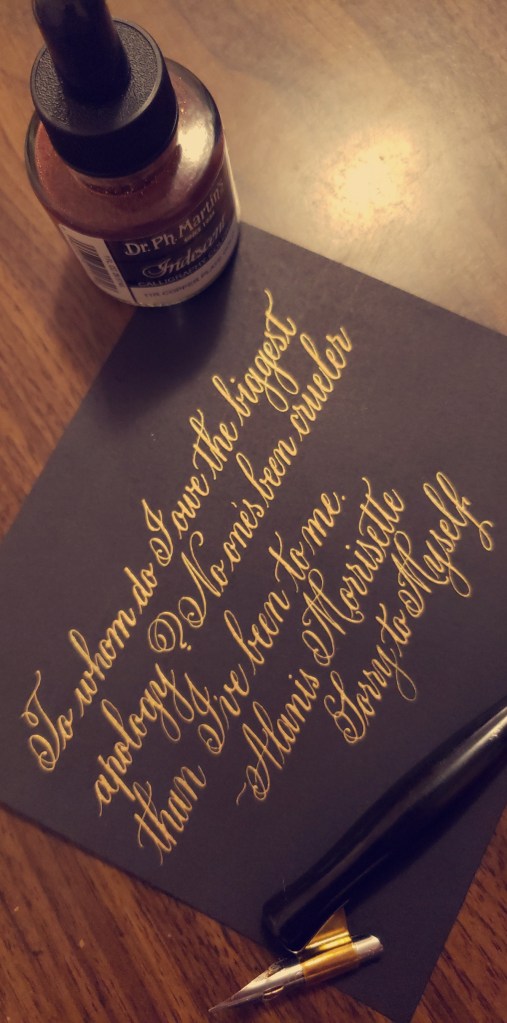 Dr. Ph. Martin's
Iridescent
CALLIGRAPHY
11R COPPER PLATE
To whom do I owe the biggest
apology? No one's been crueler
than I've been to me.
~Alanis Morrisette
Sorry to Myself